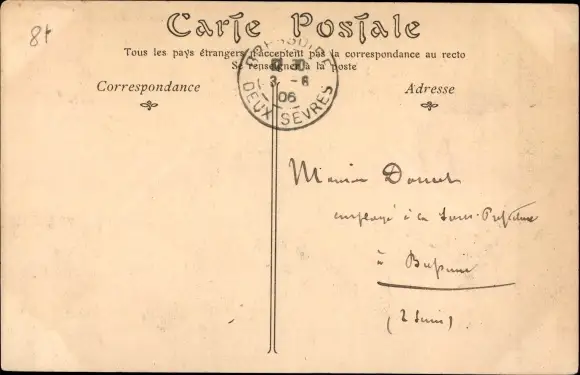 8f
Carte Postale
Tous les pays étrangers n'acceptent pas la correspondance au recto
Se renseigner à la poste
Correspondance
Adresse
BRESSUIRE
3 - 6
06
DEUX SÈVRES
employé à la Sous-Préfecture
à
(2 Sèvres)